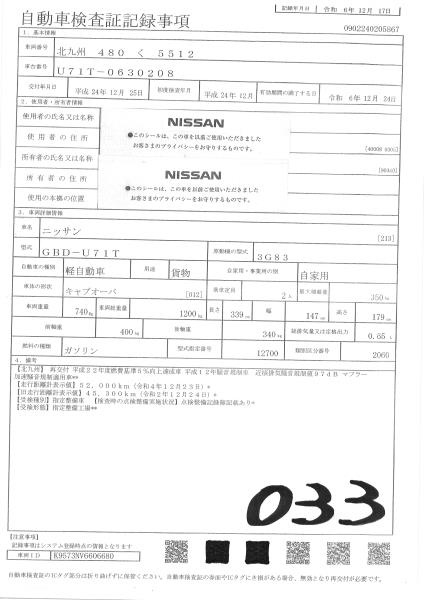 自動車検査証記録事項
記録年月日 令和 6年12月 17日
0902240205867
1. 基本情報
車両番号 北九州 480 く 5512
車台番号 U71T-0630208
交付年月日 平成 24年 12月 25日 初度検査年月 平成 24年 12月 有効期間の満了する日 令和 6年 12月 24日
2. 使用者・所有者情報
使用者の氏名又は名称
使用者の住所
所有者の氏名又は名称
所有者の住所
使用の本拠の位置
NISSAN
●このシールは、この車を以前ご使用いただきました
お客さまのプライバシーをお守りするものです。
NISSAN
●このシールは、この車を以前ご使用いただきました
お客さまのプライバシーをお守りするものです。
3. 車両詳細情報
車名 ニッサン [213]
型式 GBD-U71T 原動機の型式 3G83
自動車の種別 軽自動車 用途 貨物 自家用・事業用の別 自家用
車体の形状 キャブオーバ [012] 乗車定員 2人 最大積載量 350kg
車両重量 740kg 車両総重量 1200kg 長さ 339cm 幅 147cm 高さ 179cm
前軸重 400kg 後軸重 340kg 総排気量又は定格出力 0.65 L
燃料の種類 ガソリン 型式指定番号 12700 類別区分番号 2060
4. 備考
【北九州】 再交付 平成22年度燃費基準5%向上達成車 平成12年騒音規制車 近接排気騒音規制値97dB マフラー
加速騒音規制適用車**
【走行距離計表示値】52,000km(令和4年12月23日)*
【旧走行距離計表示値】45,300km(令和2年12月24日)*
【受検種別】指定整備車 【検査時の点検整備実施状況】点検整備記録簿記載あり*
【受検形態】指定整備工場**
033
[注意事項]
記録事項はシステム登録時点の情報となります
車両ID K9573NV6606680
自動車検査証のICタグ部分は折り曲げずに保管ください。自動車検査証の券面やICタグにき損がある場合、無効となり再交付が必要です。